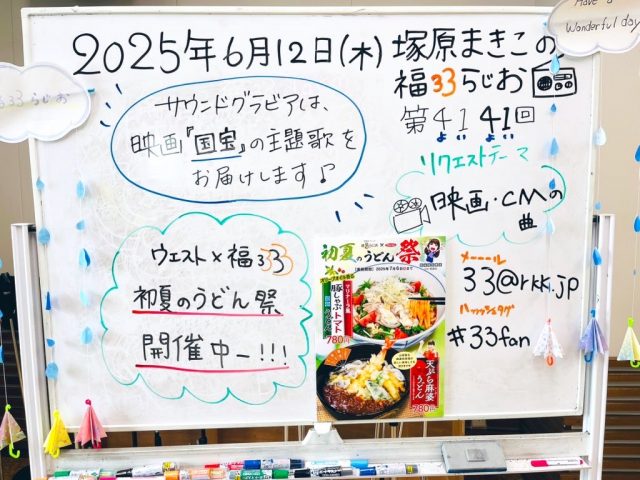 Have a
Wonderful day
2025年6月12日(木) 塚原まきこの
福33らじお
第41 41回
よい よい
サウンドグラビアは、
映画『国宝』の主題歌を
お届けします♪
リクエストテーマ
映画・CMの
曲
ウエスト×福333
初夏のうどん祭
開催中ー!!!
初夏のうどん祭
豚しゃぶトマト
780円
天ぷら麻婆
うどん
780円
メーール
33@rkk.jp
ハッシュタグ
#33fan